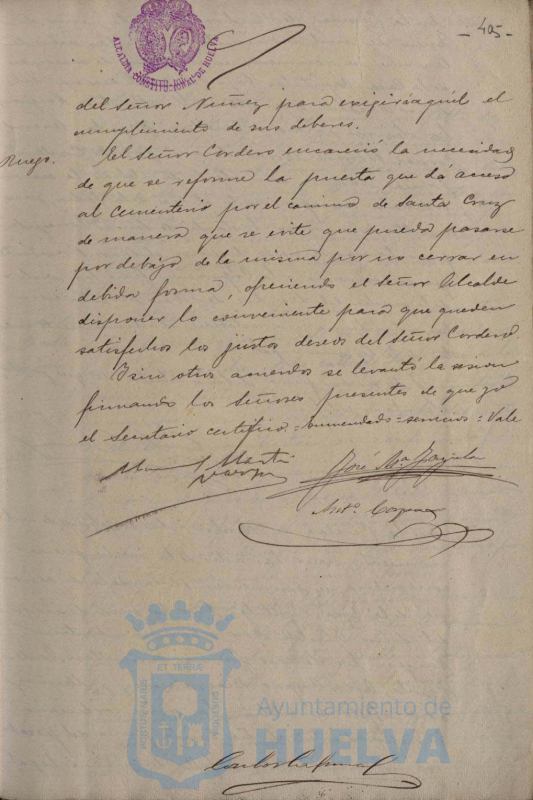 - 405 -
ALCALDIA CONSTITUCIONAL DE HUELVA
del Señor Nuñez para exigir á aquél el
cumplimiento de sus deberes.
Ruego.
El Señor Cordero encareció la necesidad
de que se reforme la puerta que dá acceso
al cementerio por el camino de Santa Cruz
de manera que se evite que pueda pasarse
por debajo de la misma por no cerrar en
debida forma, ofreciendo el Señor Alcalde
disponer lo conveniente para que queden
satisfechos los justos deseos del Señor Cordero.
Y sin otros acuerdos se levantó la sesion
firmando los Señores presentes de que yo
el Secretario certifico. = enmendado = servicios = Vale
José Mª
Antº
PORTUS MARIS
ET TERRÆ
CUSTODIA
Ayuntamiento de
HUELVA